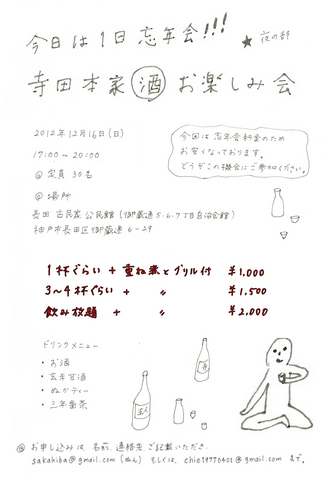 今日は1日忘年会!!!
★ 夜の部
寺田本家 酒 お楽しみ会
2012年12月16日(日)
17:00〜20:00
@ 定員 30名
@ 場所
長田 古民家 公民館 (御蔵通5・6・7丁目自治会館)
神戸市長田区御蔵通 6-29
今回は忘年会料金のため
お安くなっております。
どうぞこの機会にご参加ください。
1杯ぐらい + 重ね煮とグリル付 ¥1,000
3〜4杯ぐらい + 〃 ¥1,500
飲み放題 + 〃 ¥2,000
ドリンクメニュー
・お酒
・玄米甘酒
・ぬかティー
・三年番茶
@ お申し込みは、名前、連絡先 ご記載いただき、
sakakiba@gmail.com (ぬん) もしくは、chie19770401@gmail.com まで。